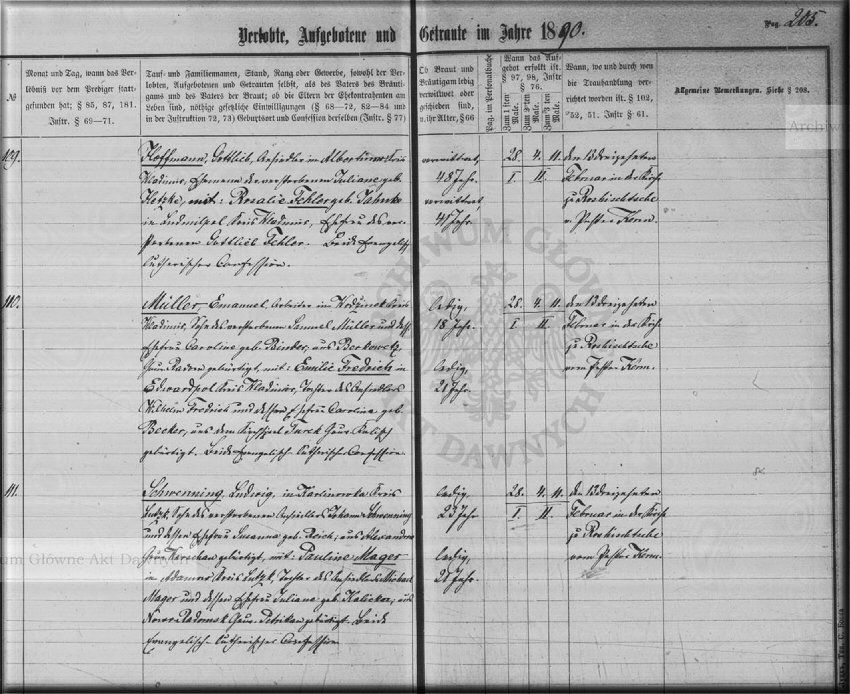 Pag. 205.
Verlobte, Aufgebotene und Getraute im Jahre 1890.
№
Monat und Tag, wann das Ver-
löbniß vor dem Prediger statt-
gefunden hat; § 85, 87, 181.
Instr. § 69—71.
Tauf- und Familiennamen, Stand, Rang oder Gewerbe, sowohl der Ver-
lobten, Aufgebotenen und Getrauten selbst, als des Vaters des Bräuti-
gams und des Vaters der Braut; ob die Eltern der Ehekontrahenten am
Leben sind, nöthige gesetzliche Einwilligungen (§ 68—72, 82—84 und
in der Instruktion 72, 73) Geburtsort und Confession derselben (Instr. § 77)
Ob Braut und
Bräutigam ledig
verwittwet oder
geschieden sind,
u. ihr Alter, § 66
Pag. im Personalbuche
Wann das Auf-
gebot erfolgt ist.
§ 97, 98, Instr
§ 76.
Zum 1 sten Male.
Zum 2 ten Male.
Zum 3 ten Male.
Wann, wo und durch wen
die Trauhandlung ver-
richtet worden ist. § 102,
152, 51. Instr § 61.
Allgemeine Bemerkungen. Siehe § 208.
109.
Hoffmann, Gottlieb, Ansiedler in Albertinow Kreis
Wladimir, Ehemann der verstorbenen Juliane geb.
mit: Rosalie Fehler geb. Jahnke
in Ludmilpol Kreis Wladimir, Ehefrau des ver-
storbenen Gottlieb Fehler. Beide Evangelisch
Lutherischer Confession.
verwittwet,
48 Jahr.
verwittwet,
41 Jahr.
28. 4. 11.
I. II.
den 13 dreizehnten
Februar in der Kirche
zu Roshischtsche
v. Pastor Kerm.
110.
Müller, Emanuel, Arbeiter in Kreis
Wladimir, Sohn des verstorbenen Samuel Müller und dess.
Ehefrau Caroline geb. Binder, aus Berkowetz
Gouv. Radom gebürtigt, mit: Emilie Fredrich in
Edwardpol Kreis Wladimir, Tochter des Ansiedlers
Wilhelm Fredrich und dessen Ehefrau Carolina geb.
Becker, aus dem Kirchspiel Turek Gouv. Kalisch
gebürtigt. Beide Evangelisch Lutherischer Confession.
ledig,
18 Jahr.
ledig,
21 Jahr.
28. 4. 11.
I. II.
den 13 dreizehnten
Februar in der Kirche
zu Roshischtsche
vom Pastor Kerm.
111.
Schwenning, Ludwig, in Karlinowka Kreis
Lutzk, Sohn des verstorbenen Ansiedlers Johann Schwenning
und dessen Ehefrau Susanna geb. Reich, aus
Gouv. Warschau gebürtigt, mit: Pauline Mager
in Adamow Kreis Lutzk, Tochter des Ansiedlers Michael
Mager und dessen Ehefrau Juliane geb. aus
Nowo Radomsk Gouv. Petrikau gebürtigt. Beide
Evangelisch Lutherischer Confession
ledig,
23 Jahr
ledig,
28 Jahr.
28. 4. 11.
I. II.
den 13 dreizehnten
Februar in der Kirche
zu Roshischtsche
vom Pastor Kerm.
ARCHIWUM GŁÓWNE AKT DAWNYCH
Archiw
um Główne Akt Dawnych